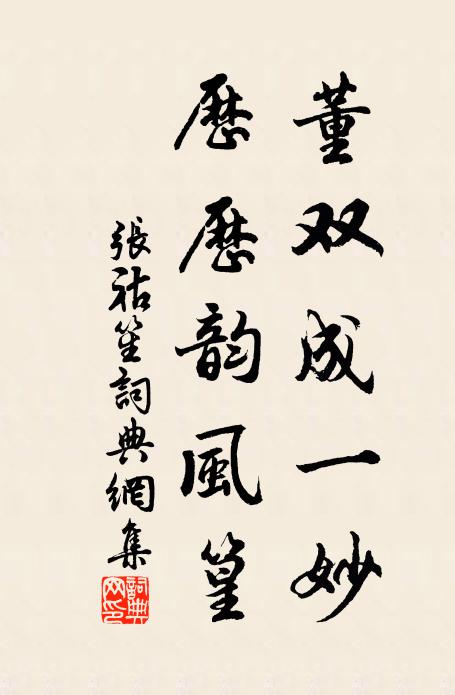 董双成一妙
歷歷韵風篁
張祜笙詞典網集
詞典网印